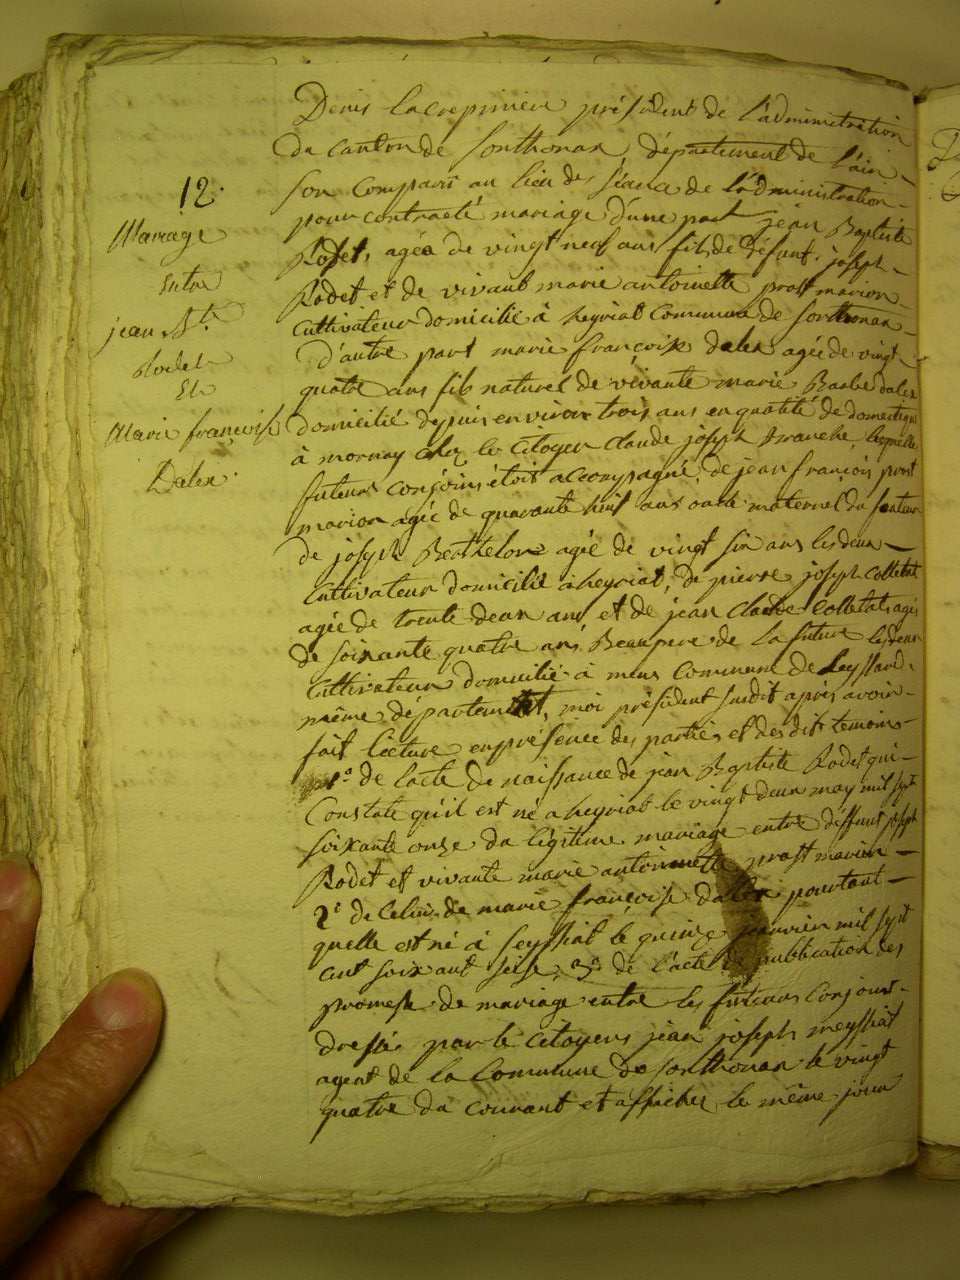 12.
Mariage
Entre
jean Bte
Rodet
Et
Marie françoise
Dalex.
Denis Lacrepiniere président de l'administration
du canton de Sonthonax, département de l'ain -
Son comparü au lieu des séance de l'administration -
pour contracté mariage d'une part jean Baptiste
Rodet, agéa de vingt neuf ans fils de défunt joseph -
Rodet et de vivant marie antoinette prost marion -
Cultivateur domicilié à heyriat Commune de Sonthonax -
D'autre part marie françoise dalex agée de vingt -
quatre ans fils naturel de vivante marie Barbe dalex
domicilié depuis environ trois ans en qualité de domestique
à mornay chez le citoyen claude joseph tranche,
futeurs conjoins étoit accompagné, de jean françois prost
marion agée de quarante huit ans oncle maternel du futeur
de joseph Berthelon agée de vingt six ans les deux -
Cultivateur domicilié à heyriat, de pierre joseph colletat
agée de trente deux ans et de jean claude colletat agé
de soixante quatre ans Beaupere de la future les deux
Cultivateur domicilié à mens Commune de Leyssard,
même département, moi président susdit après avoir -
fait lecture en présence des parties et des dits temoins -
1° de l'acte de naissance de jean Baptiste Rodet qui -
Constate qu'il est né a heyriat le vingt deux may mil sept
soixante onze du légitime mariage entre déffunt joseph
Rodet et vivante marie antoinette prost marion -
2° de Celui de marie françoise dalex pourtant -
quelle est né à Leyssiat le quinze janvier mil sept
cent soixant seise, 3° de l'acte de publication des
promesse de mariage entre les futeurs conjoins -
dressée par le citoyens jean joseph meyssiat
agent de la Commune de Sonthonax le vingt
quatre du courant et affichez le même jour